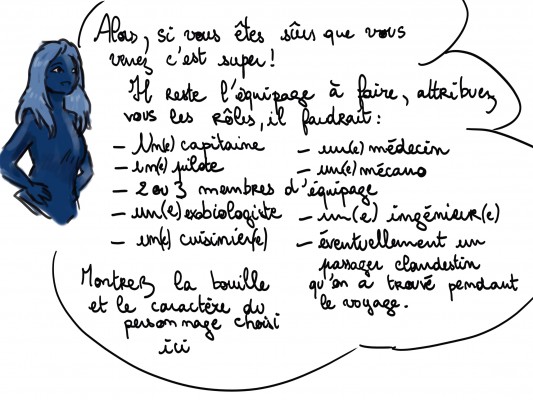 Alors, si vous êtes sûrs que vous
venez c'est super!
Il reste l'équipage à faire, attribuez
vous les rôles, il faudrait:
- Un(e) capitaine
- un(e) pilote
- 2 ou 3 membres d'équipage
- un(e) exobiologiste
- un(e) cuisinier(e)
- un(e) médecin
- un(e) mécano
- un(e) ingénieur(e)
- éventuellement un
passager clandestin
qu'on a trouvé pendant
le voyage.
Montrez la bouille
et le caractère du
personnage choisi
ici